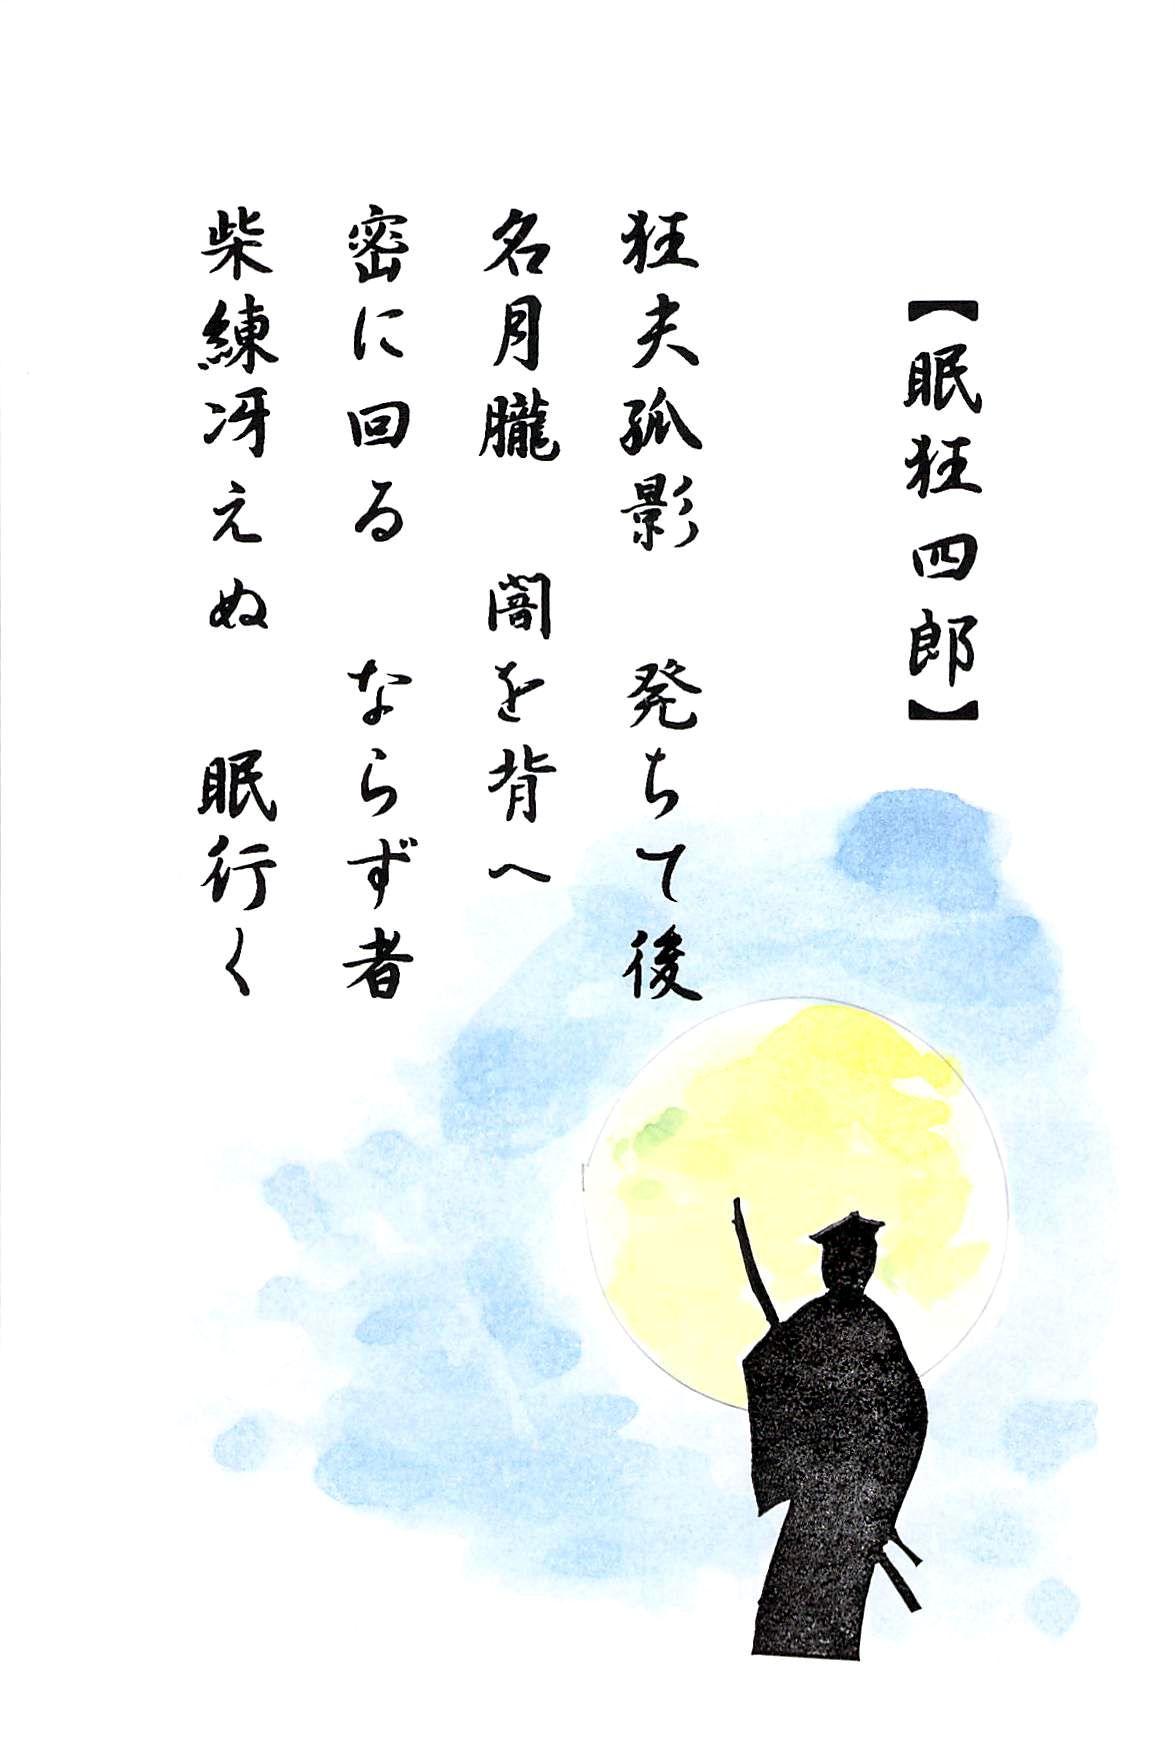 【眠狂四郎】
狂夫孤影　発ちて後
名月朧　闇を背へ
密に回る　ならず者
柴練冴えぬ　眠行く